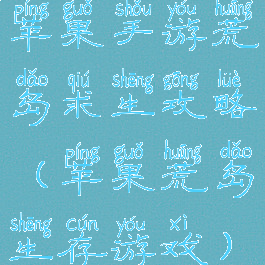 píng guǒ shǒu yóu huāng
苹果手游荒
dǎo qiú shēng gōng lüè
岛求生攻略
píng guǒ huāng dǎo
（苹果荒岛
shēng cún yóu xì
生存游戏）